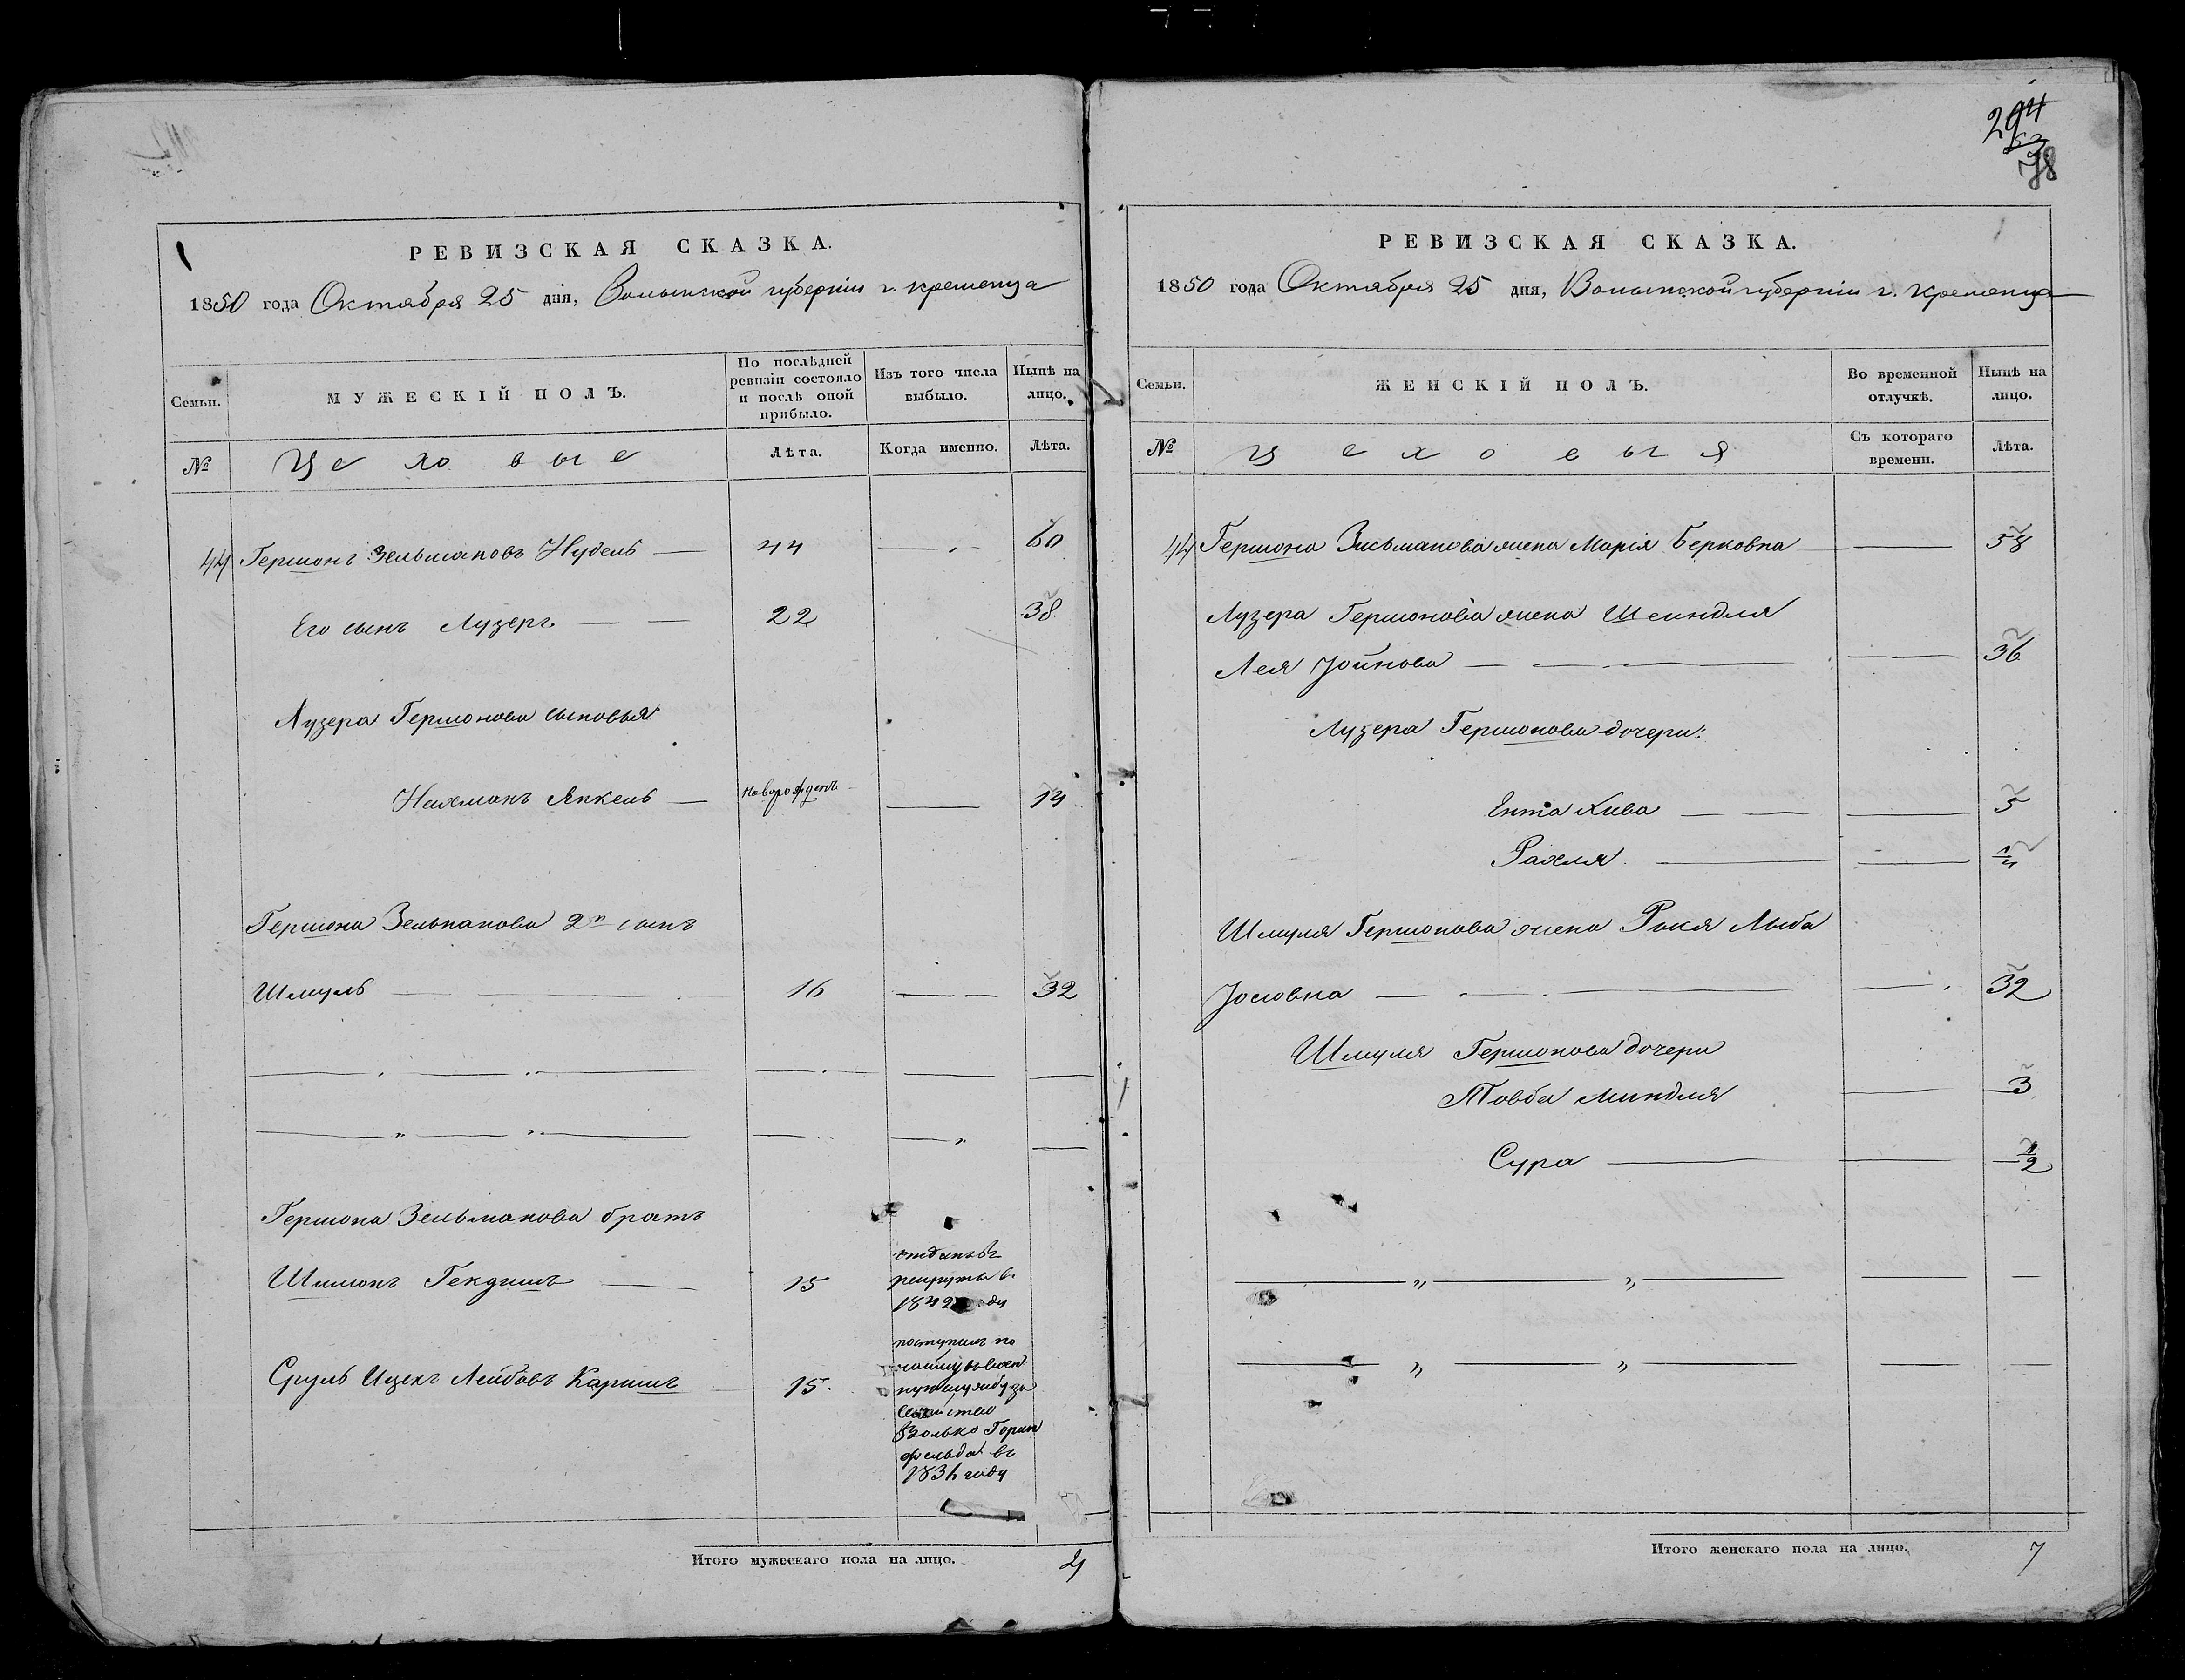 294
63
78
РЕВИЗСКАЯ СКАЗКА.
1850 года Октября 25 дня, Волынской губерніи г. Кременца
Семьи.
МУЖЕСКІЙ ПОЛЪ.
По послѣдней ревизіи состояло и послѣ оной прибыло.
Изъ того числа выбыло.
Нынѣ на лицо.
№
Цеховые
Лѣта.
Когда именно.
Лѣта.
44 Гершонъ Зельмановъ Нудель 44 60
Его сынъ Лузеръ 22 38
Лузера Гершонова сыновья
Нахманъ Янкель новорожденъ 14
Гершона Зельманова 2й сынъ
Шмуль 16 32
Гершона Зельманова братъ
Шимонъ Гекдишъ 15 отданъ въ рекруты въ 1849 году
Сруль Ицекъ Лейбовъ Каришъ 15 поступилъ по найму въ военную службу за семейство Волько Горинфельда въ 1836 году
Итого мужескаго пола на лицо. 4
РЕВИЗСКАЯ СКАЗКА.
1850 года Октября 25 дня, Волынской губерніи г. Кременца
Семьи.
ЖЕНСКІЙ ПОЛЪ.
Во временной отлучкѣ.
Нынѣ на лицо.
№
Цеховыя
Съ котораго времени.
Лѣта.
44 Гершона Зисьманова жена Марія Берковна 58
Лузера Гершонова жена Шеиндля
Лея Іойнова 36
Лузера Гершонова дочери:
Ента Хива 5
Рахля 1/4
Шмуля Гершонова жена Рыкя Лыба
Іосіовна 32
Шмуля Гершонова дочери
Товба Миндля 3
Сура 1/2
Итого женскаго пола на лицо. 7